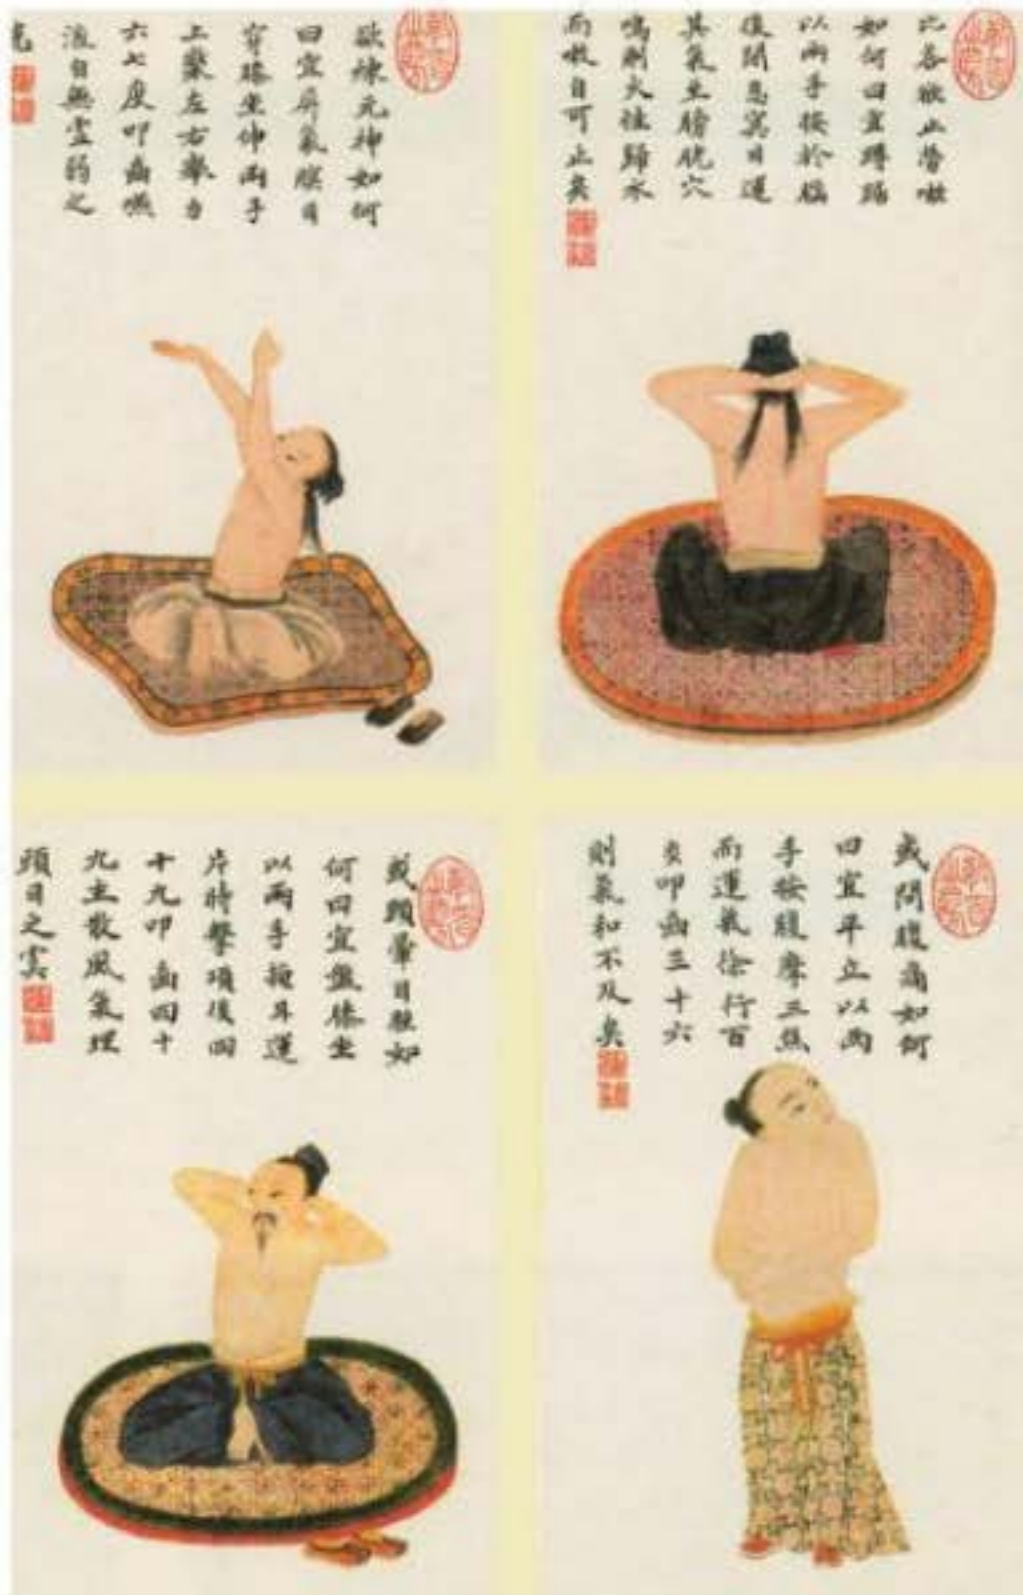 欲止
如何曰宜蹲踞
以兩手按於腦
後閉息目運
其氣至膀胱穴
鳴則火往歸水
而嗽自可止矣
欲煉元神如何
曰宜屏氣瞑目
穿膝坐伸兩手
上擎左右舉各
六七度叩齒嚥
液自無虛弱之
或問腹痛如何
曰宜平立以兩
手按腹摩三焦
而運氣徐行百
叩齒三十六
則氣和不及矣
或頭暈目眩如
何曰宜盤膝坐
以兩手掩耳運
片時擊項後四
十九叩齒四十
九主散風氣理
頭目之害